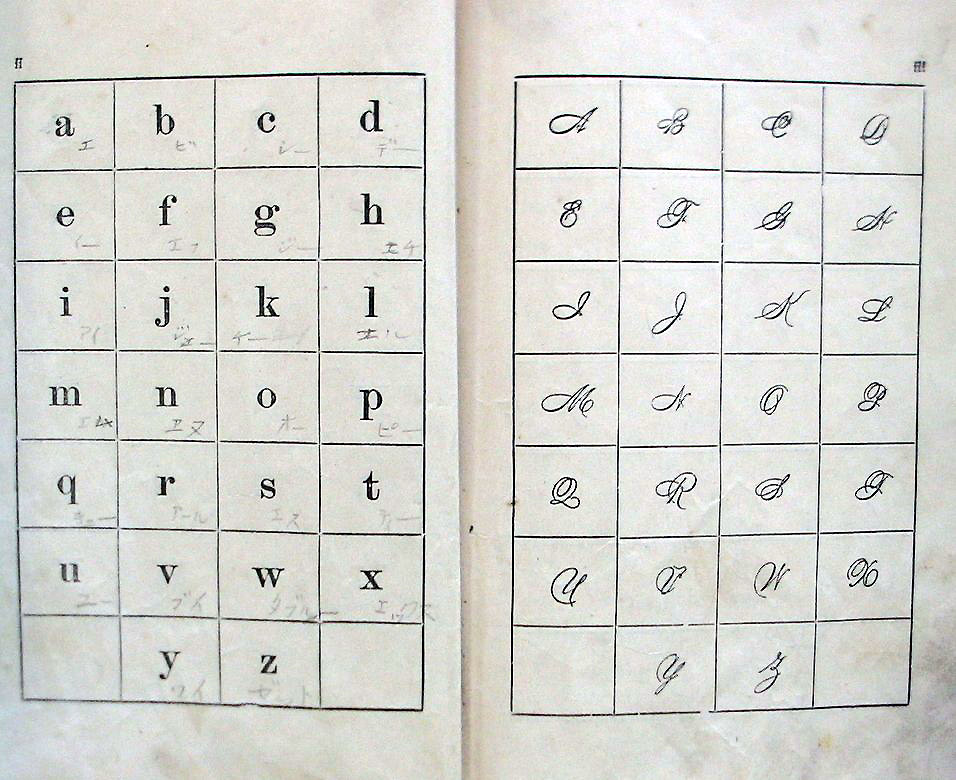 a b c d
エ ビ シー デー
e f g h
イー エフ ジー エチ
i j k l
アイ ジェー ケー エル
m n o p
エム エヌ オー ピー
q r s t
キュー アール エス ティー
u v w x
ユー ブイ ダブルー エックス
y z
ワイ ゼット
A B C D
E F G H
I J K L
M N O P
Q R S T
U V W X
Y Z